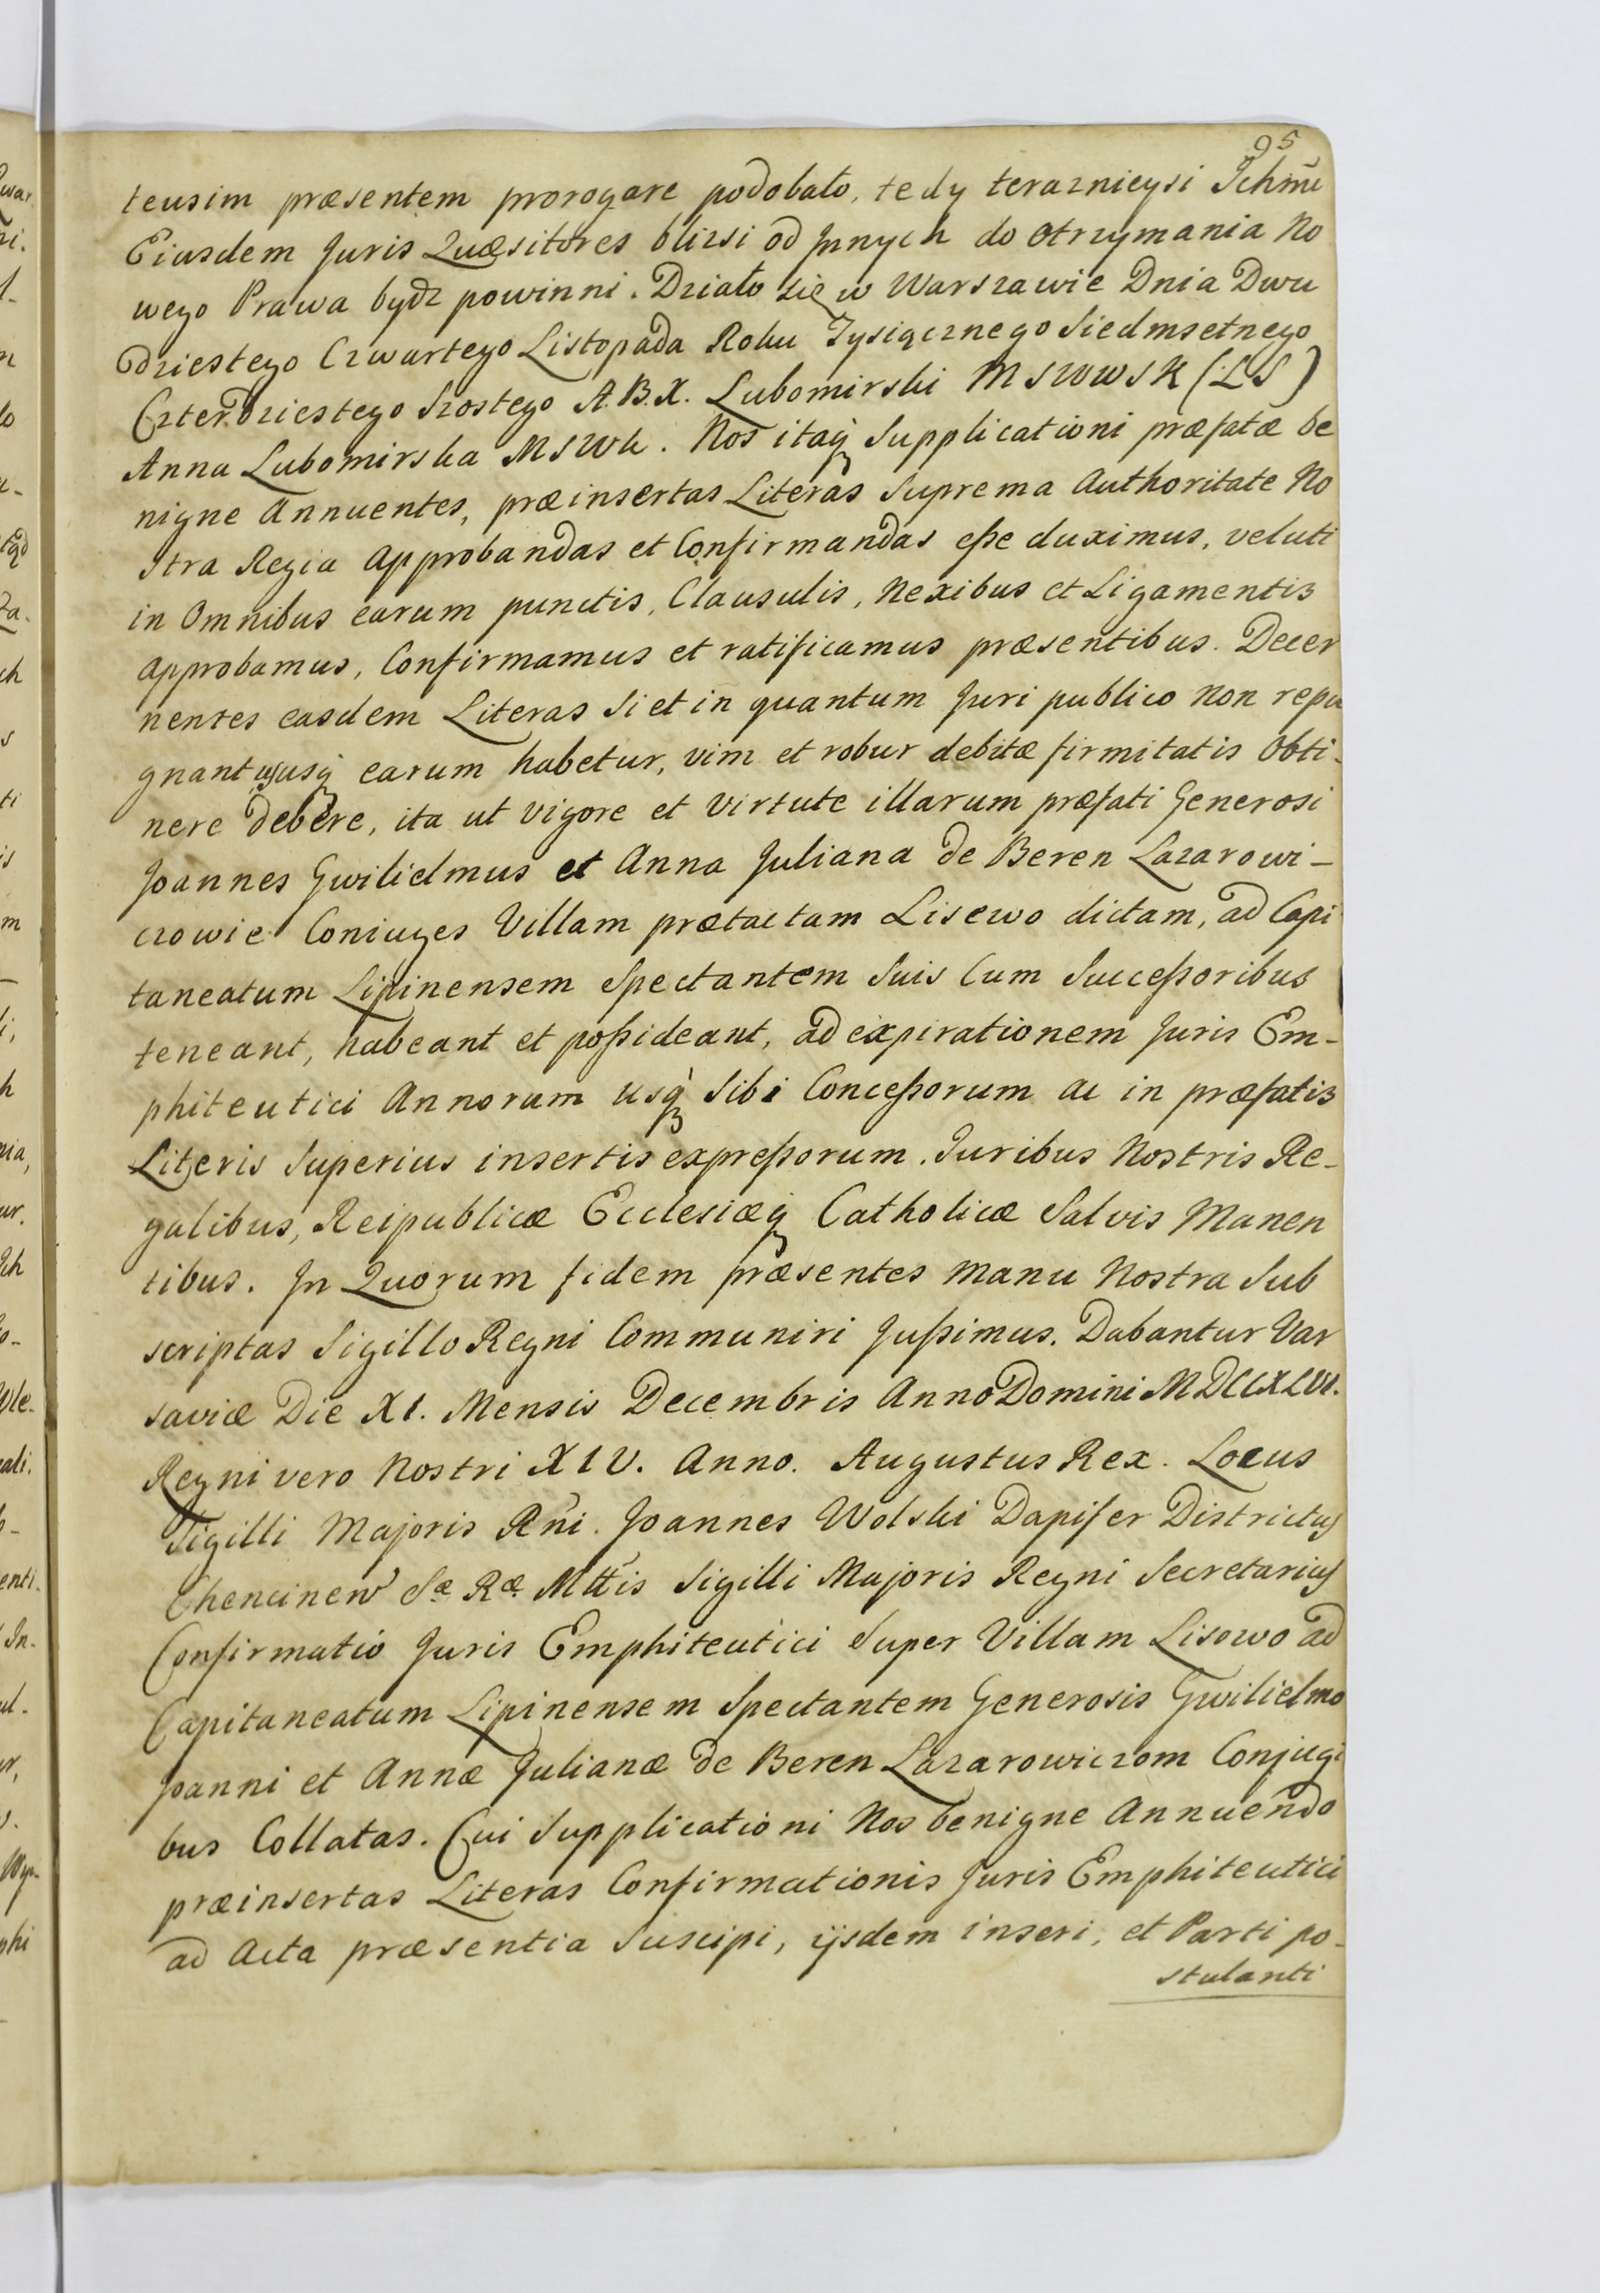 95
teusim præsentem prorogare podobało, tedy teraznieysi Ichmć
Eiusdem Juris Quæsitores blizsi od Jnnych do otrzymania No
wego Prawa bydz powinni. Działo się w Warszawie Dnia Dwu
dziestego Czwartego Listopada Roku Tysiącznego Siedmsetnego
Czterdziestego Szostego A.B.X. Lubomirski MSWWSK (LS)
Anna Lubomirska MSWk. Nos itaq Supplicationi præfatæ be
nigne Annuentes, præinsertas Literas Suprema Authoritate No
stra Regia Approbandas et Confirmandas eße duximus, veluti
in Omnibus earum punctis, Clausulis, Nexibus et Ligamentis
Approbamus, Confirmamus et ratificamus præsentibus. Decer
nentes easdem Literas Si et in quantum Juri publico Non repu
gnant ususq earum habetur, vim et robur debitæ firmitatis Obti-
nere debere, ita ut vigore et Virtute illarum præfati Generosi
Joannes Gwilielmus et Anna Juliana de Beren Lazarowi-
czowie Coniuges Villam prætactam Lisewo dictam, ad Capi
taneatum Lipinensem Spectantem Suis Cum Succeßoribus
teneant, habeant et poßideant, ad expirationem Juris Em-
phiteutici Annorum usq Sibi Conceßorum ac in præfatis
Literis Superius insertis expreßorum. Juribus Nostris Re-
galibus, Reipublicæ Ecclesiæq Catholicæ Salvis Manen
tibus. Jn Quorum fidem præsentes Manu Nostra Sub
scriptas Sigillo Regni Communiri Jußimus. Dabantur Var
saviæ Die XI. Mensis Decembris Anno Domini MDCCXLVI.
Regni vero Nostri XIV. Anno. Augustus Rex. Locus
Sigilli Majoris Rñi. Joannes Wolski Dapifer Districtus
Chencinen Sæ Ræ Mttis Sigilli Majoris Regni Secretarius
Confirmatio Juris Emphiteutici Super Villam Lisowo ad
Capitaneatum Lipinensem Spectantem Generosis Gwilielmo
Joanni et Annæ Julianæ de Beren Lazarowiczom Conjugi
bus Collatas. Cui Supplicationi Nos benigne Annuendo
præinsertas Literas Confirmationis Juris Emphiteutici
ad Acta præsentia Suscipi, ijsdem inseri, et Parti po-
stulanti